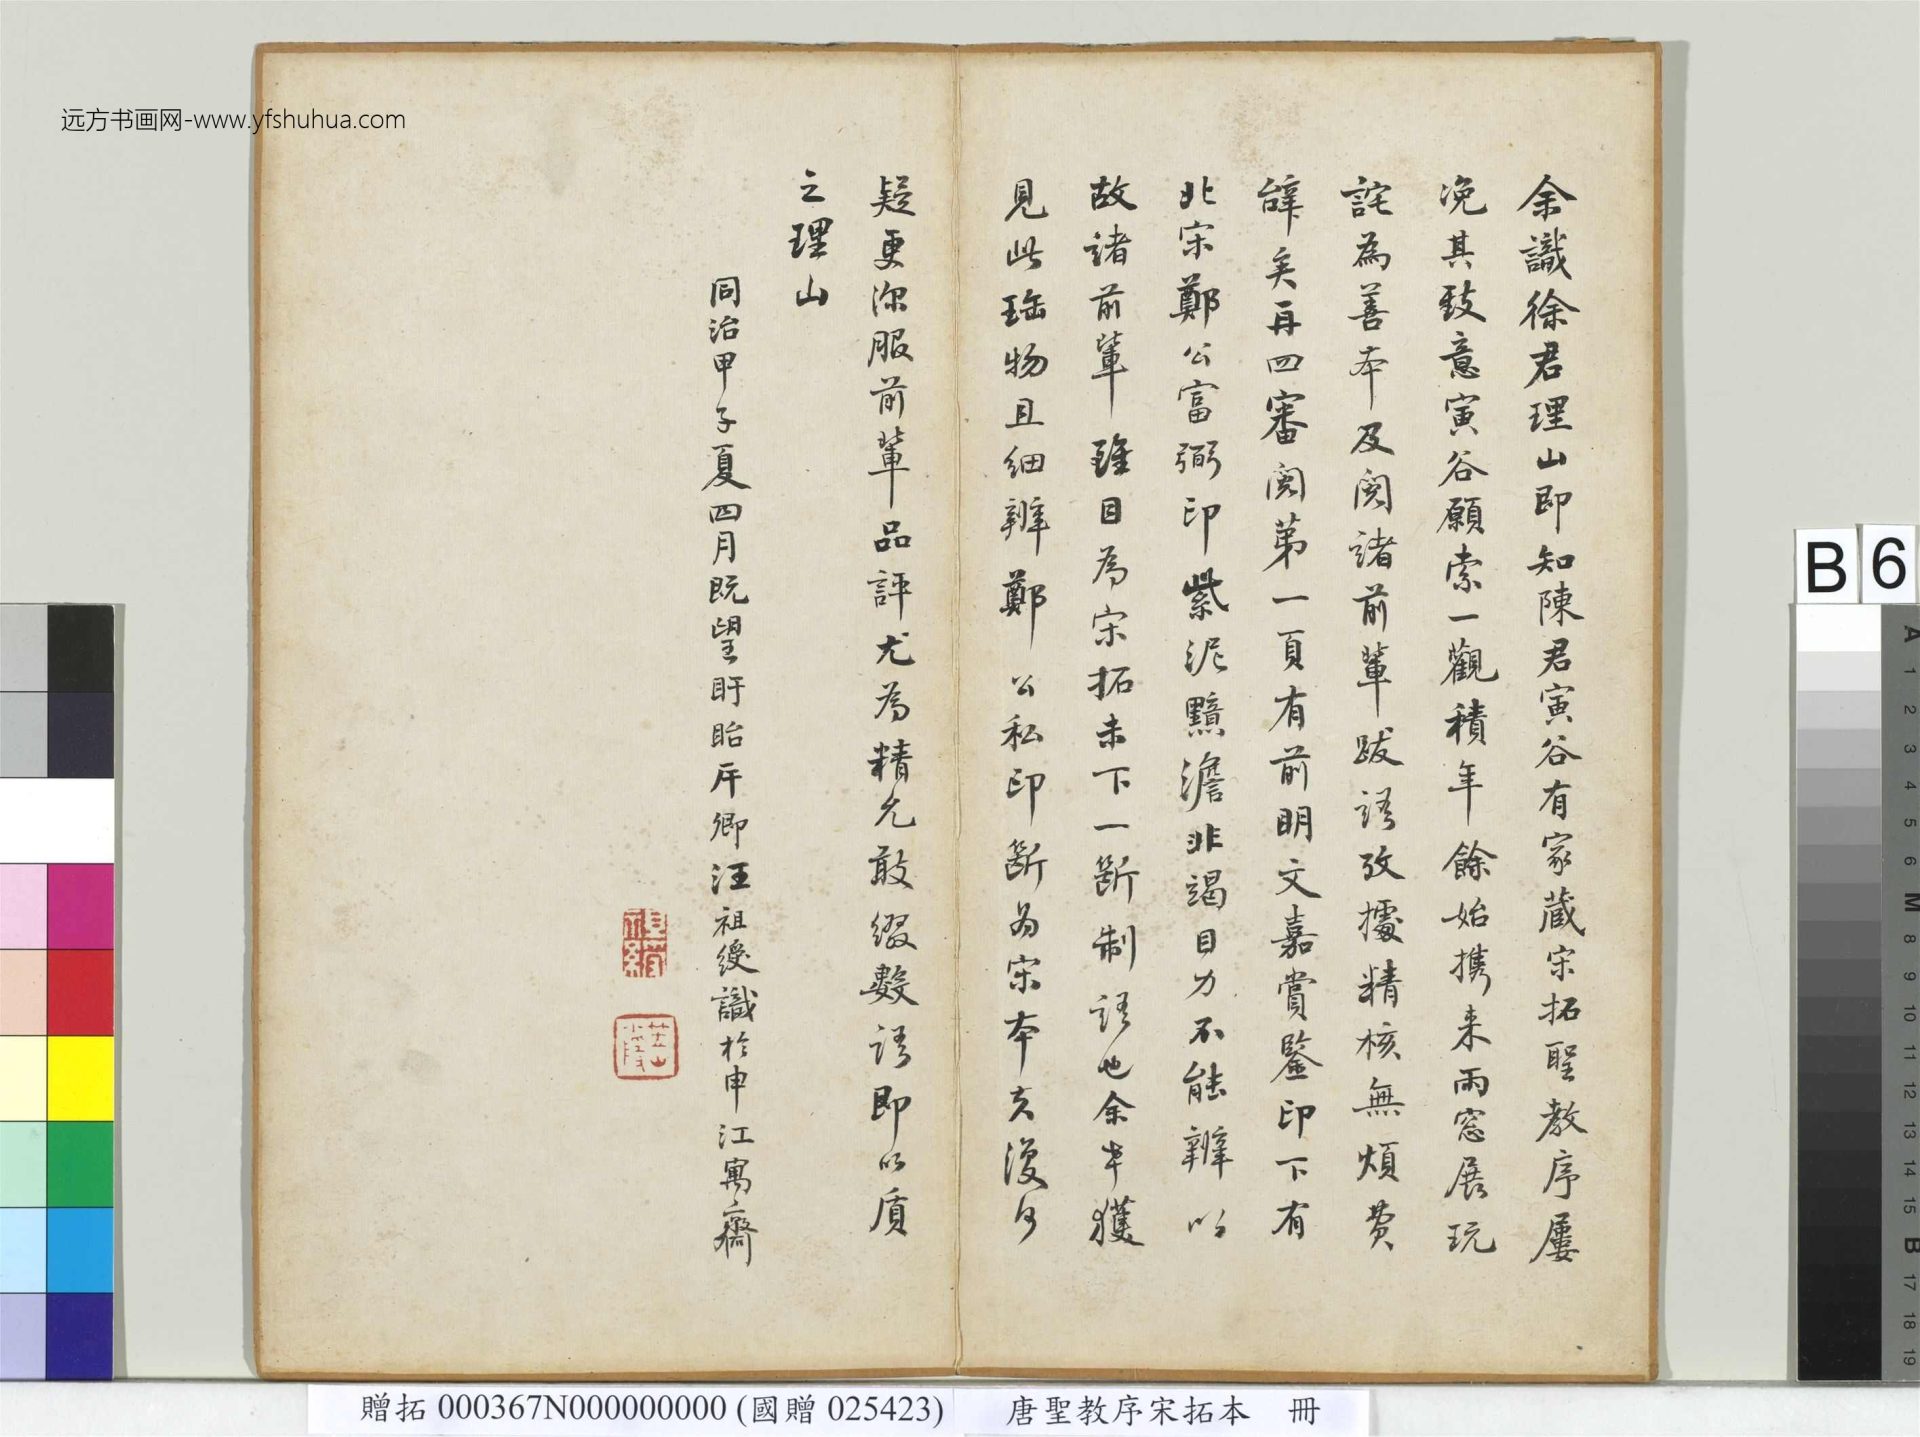 远方书画网-www.yfshuhua.com
余識徐君理山即知陳君寅谷有家藏宋拓聖教序屢
浼其致意寅谷願索一觀積年餘始携来雨窓展玩
詫為善本及閱諸前輩跋語攷據精核無煩費
辭矣再四審閱第一頁有前明文嘉賞鑒印下有
北宋鄭公富弼印紫泥黯澹非竭目力不能辨以
故諸前輩雖目為宋拓未下一斷制語也余幸獲
見此珤物且細辨鄭公私印斷為宋本夫復何
疑更深服前輩品評尤為精允敢綴數語即以質
之理山
同治甲子夏四月既望盱眙汪祖綬識於申江寓齋
B 6
A 1 2 3 4 5 6 M 8 9 10 11 12 13 14 15 B 17 18 19
贈拓 000367N000000000 (國贈 025423)
唐聖教序宋拓本 冊